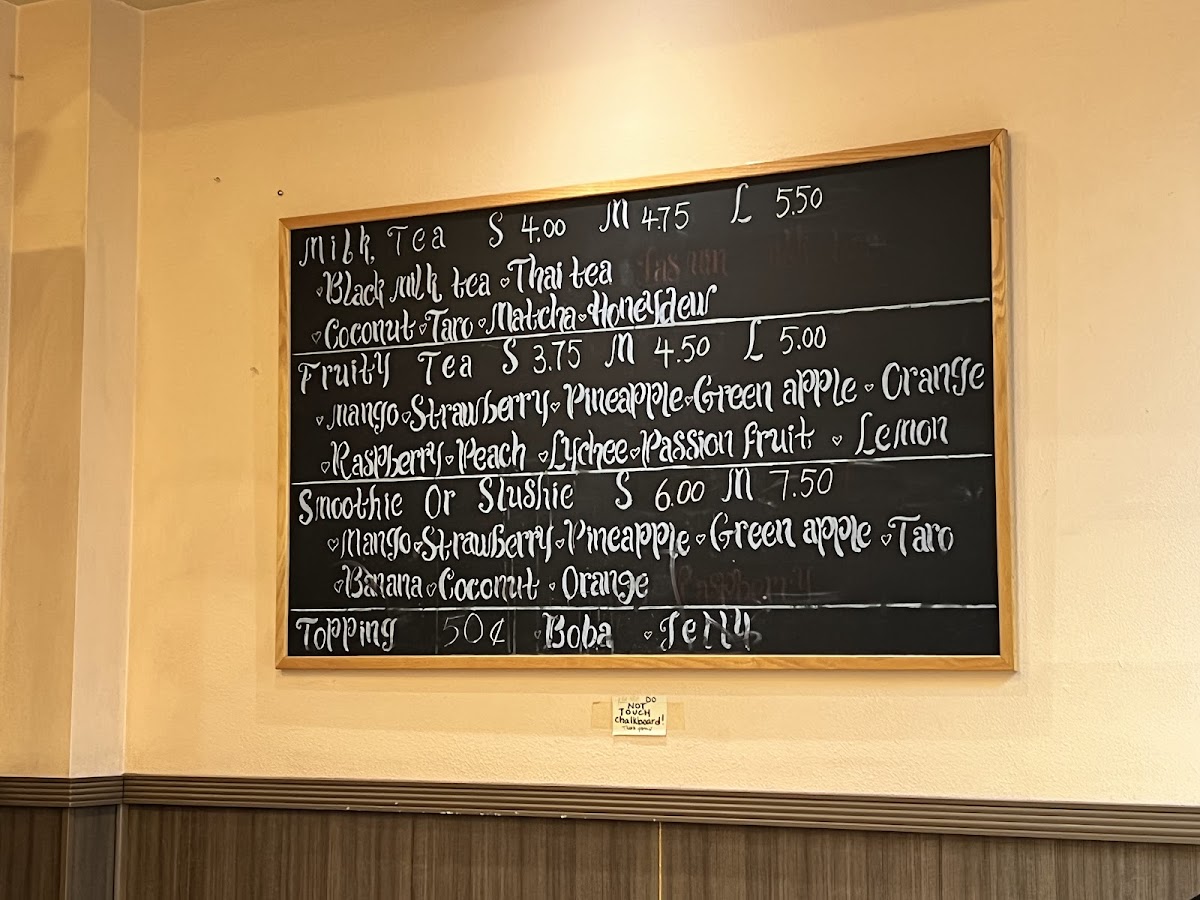 Milk Tea S 4.00 M 4.75 L 5.50
♡Black milk tea ♡Thai tea
♡Coconut ♡Taro ♡Matcha ♡Honeydew
Fruity Tea S 3.75 M 4.50 L 5.00
♡Mango ♡Strawberry ♡Pineapple ♡Green apple ♡Orange
♡Raspberry ♡Peach ♡Lychee ♡Passion fruit ♡Lemon
Smoothie Or Slushie S 6.00 M 7.50
♡Mango ♡Strawberry ♡Pineapple ♡Green apple ♡Taro
♡Banana ♡Coconut ♡Orange Raspberry
Topping 50¢ ♡Boba ♡Jelly
DO
NOT
TOUCH
Chalkboard!